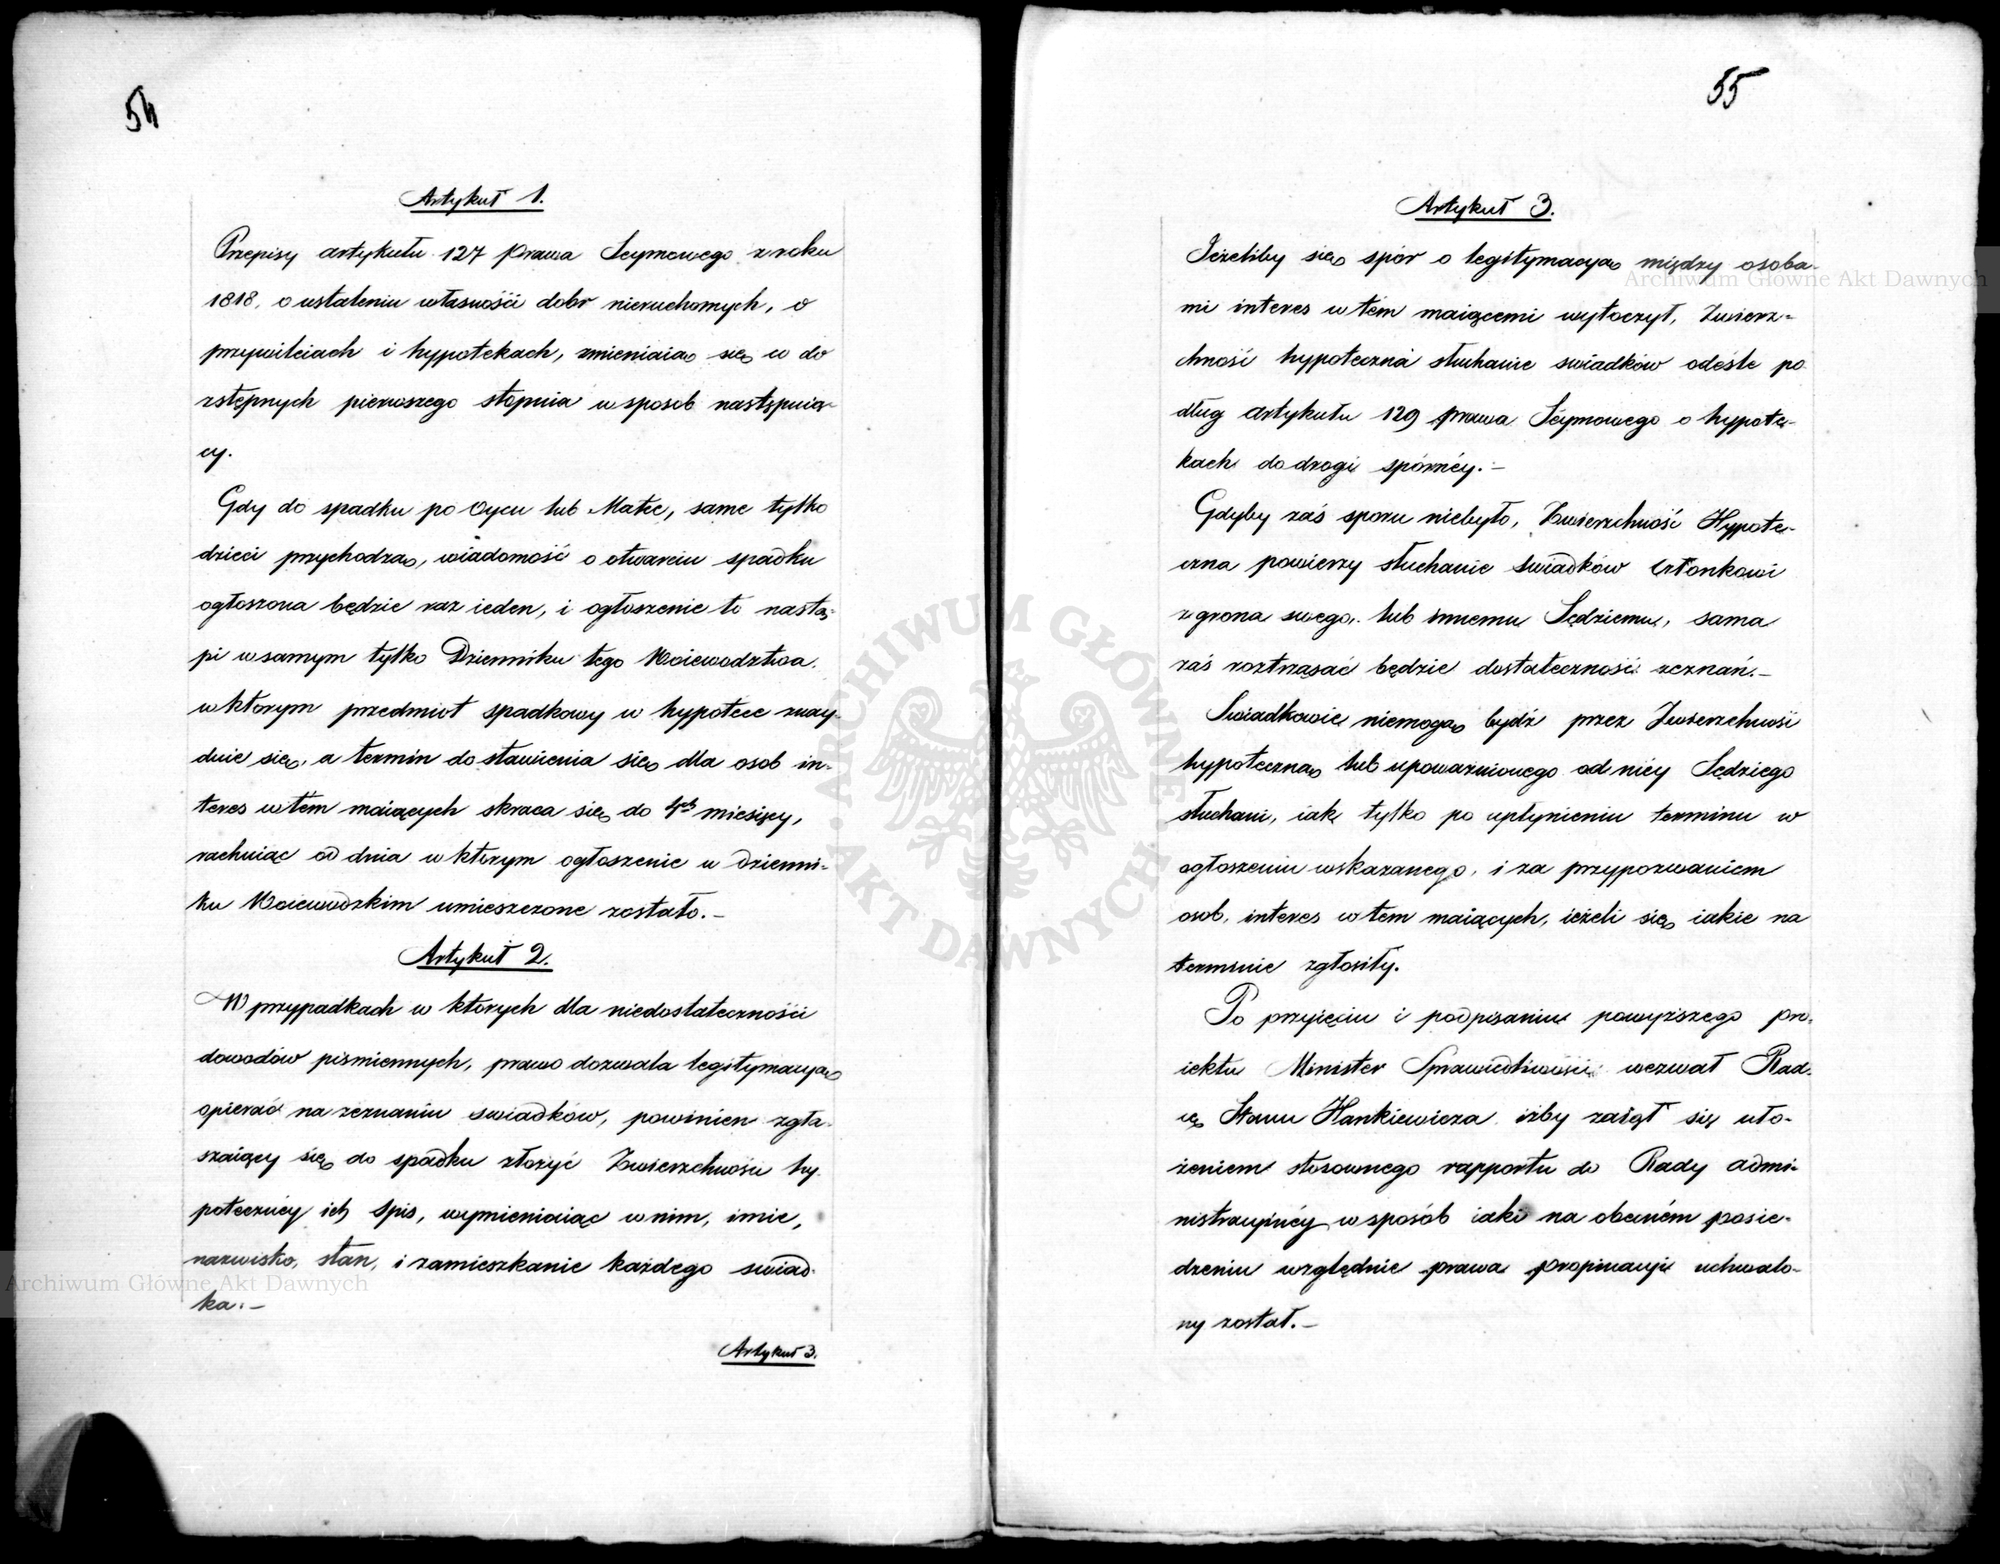 54
Artykuł 1.
Przepisy artykułu 127 prawa Seymowego z roku
1818, o ustaleniu własności dobr nieruchomych, o
przywileiach i hypotekach, zmieniaią się w do
zstępnych pierwszego stopnia w sposob następuią-
cy.
Gdy do spadku po Oycu lub Matce, same tylko
dzieci przychodzą, wiadomość o otwarciu spadku
ogłoszona będzie raz ieden, i ogłoszenie to nastą-
pi w samym tylko Dzienniku tego Woiewodztwa
w którym przedmiot spadkowy w hypotece znay-
duie się, a termin do stawienia się dla osob in-
teres w tém maiących skraca się do 4ch miesięcy,
rachuiąc od dnia w którym ogłoszenie w dzienni-
ku Woiewodzkim umieszczone zostało.-
Artykuł 2.
W przypadkach w których dla niedostateczności
dowodów piśmiennych, prawo dozwala legitymacyą
opierać na zeznaniu swiadków, powinien zgła-
szaiący się do spadku złożyć Zwierzchności hy-
poteczney ich spis, wymieniaiąc w nim, imie,
nazwisko, stan, i zamieszkanie każdego swiad-
ka.-
Artykuł 3.
55
Artykuł 3.
Jeżeliby się spór o legitymacyą między osoba-
mi interes w tém maiącemi wytoczył, Zwierz-
chność hypoteczna słuchanie swiadków odeśle po
dług artykułu 129 prawa Seymowego o hypote-
kach do drogi spórnéy.-
Gdyby zaś sporu niebyło, Zwierzchność Hypote-
czna powierzy słuchanie swiadków Członkowi
z grona swego, lub innemu Sędziemu, sama
zaś roztrząsać będzie dostateczność zeznań.-
Swiadkowie niemogą bydź przez Zwierzchność
hypoteczną lub upoważnionego od niéy Sędziego
słuchani, iak tylko po upłynieniu terminu w
ogłoszeniu wskazanego, i za przypozwaniem
osob, interes w tem maiących, ieżeli się iakie na
terminie zgłosiły.
Po przyięciu i podpisaniu powyższego pro-
iektu Minister Sprawiedliwości wezwał Rad-
cę Stanu Hankiewicza iżby zaiął się uło-
żeniem stosownego rapportu do Rady admi-
nistracyinéy w sposób iaki na obecném posie-
dzeniu względnie prawa propinacyi uchwalo-
ny został.-
Archiwum Główne Akt Dawnych
Archiwum Główne Akt Dawnych
ARCHIWUM GŁÓWNE AKT DAWNYCH